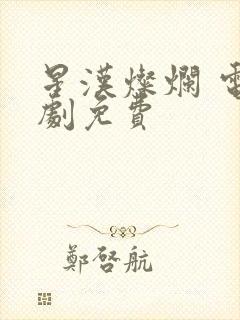 星漢燦爛 電
劇免費
鄭啓航